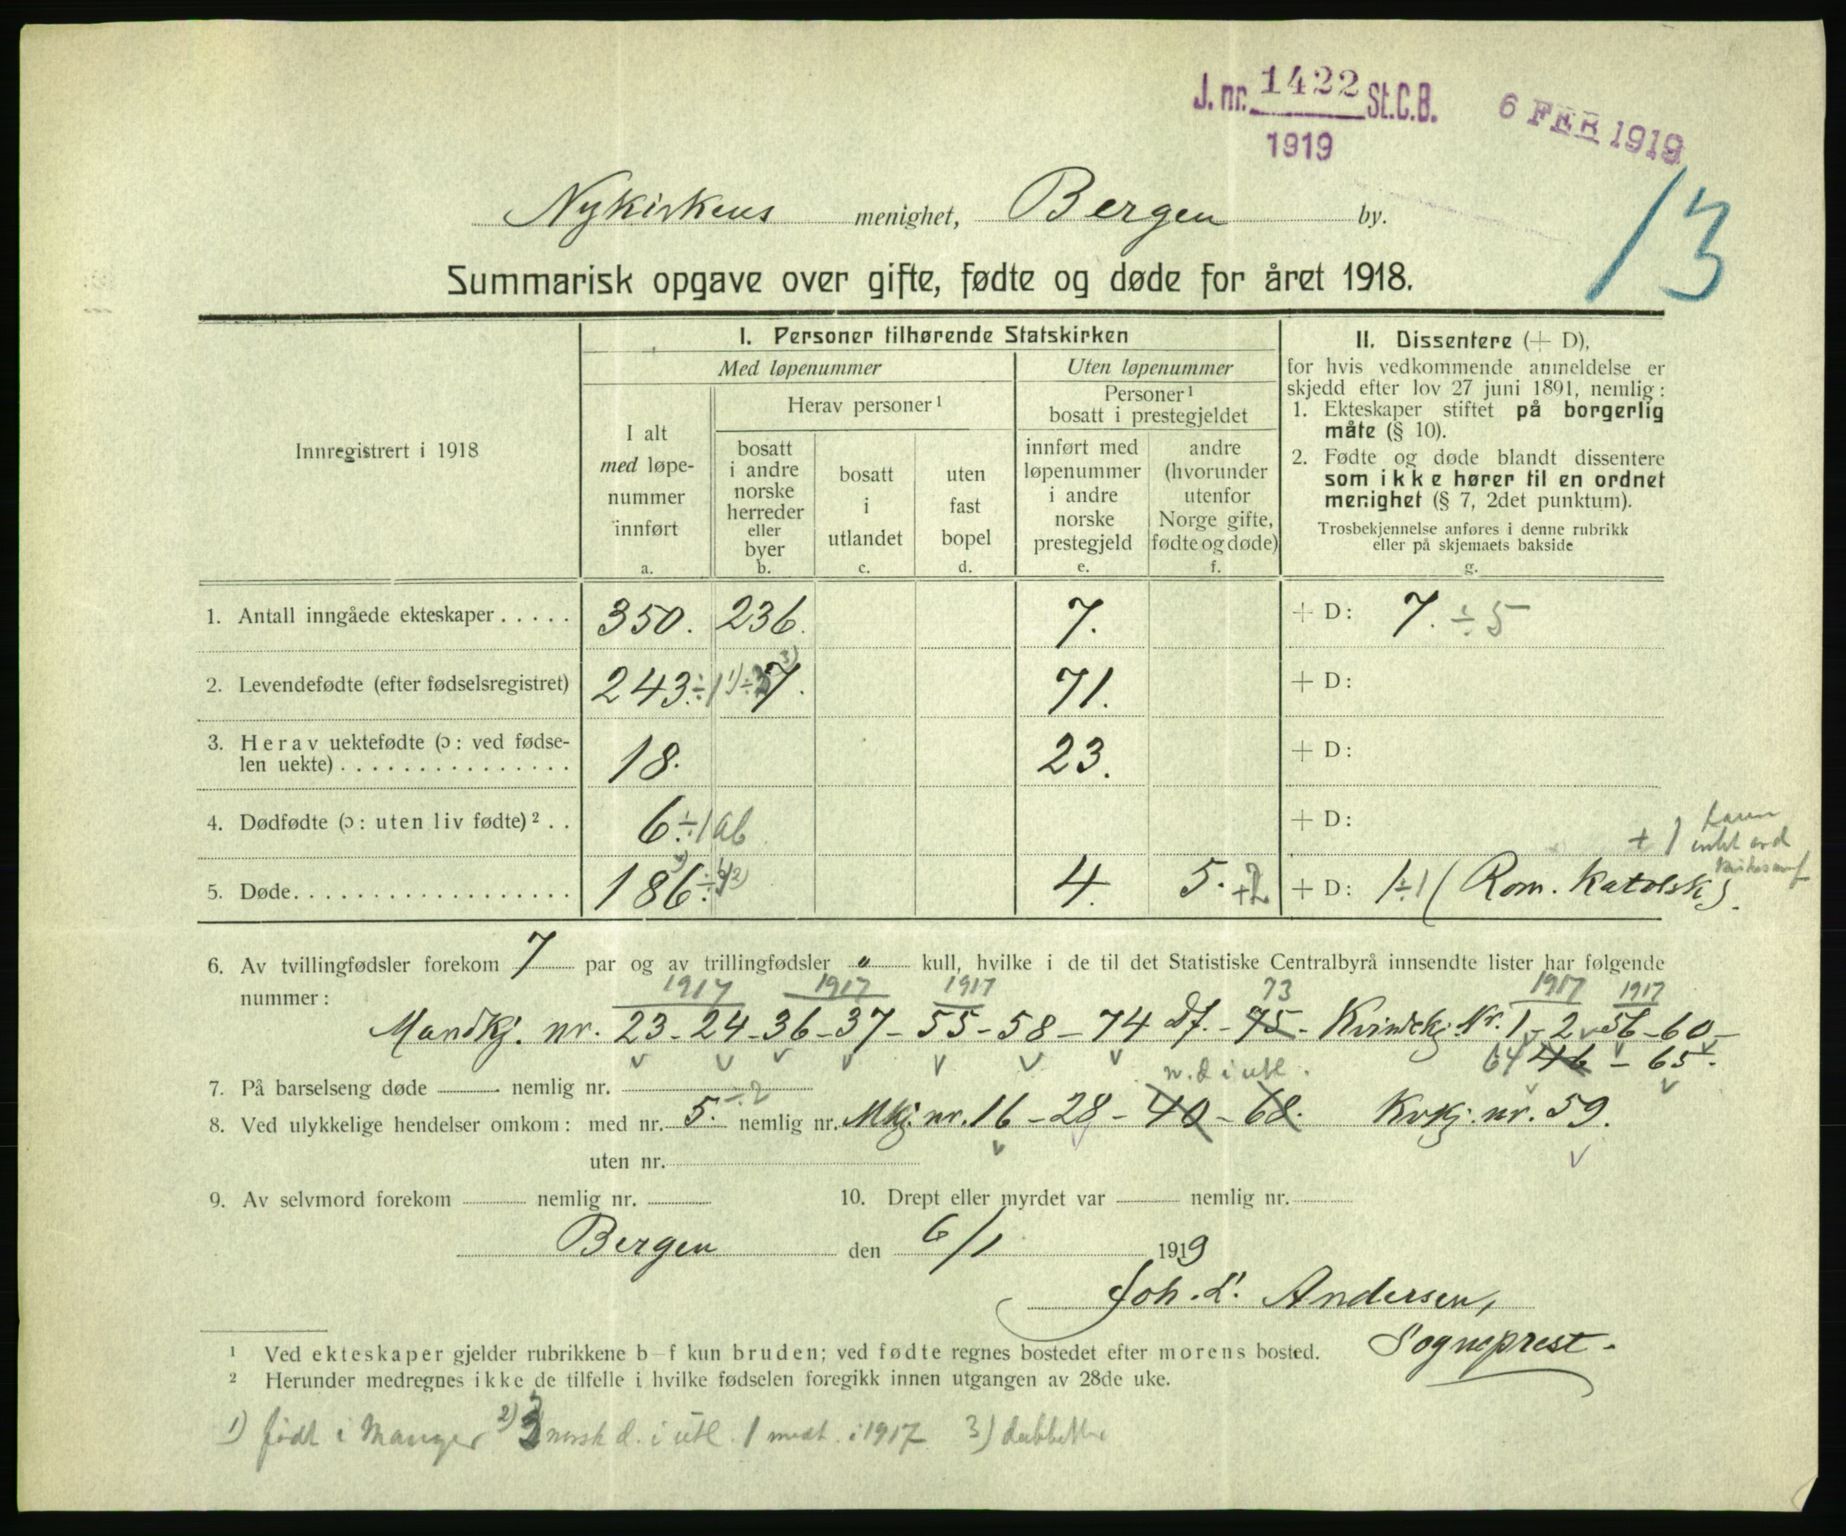 J. nr. 1422 St.C.B.
1919
6 FEB 1919
13
Nykirkens menighet, Bergen by.
Summarisk opgave over gifte, fødte og døde for året 1918.
Innregistrert i 1918
I. Personer tilhørende Statskirken
Med løpenummer
Uten løpenummer
I alt
med løpe-
nummer
innført
a.
Herav personer¹
bosatt
i andre
norske
herreder
eller
byer
b.
bosatt
i
utlandet
c.
uten
fast
bopel
d.
Personer¹
bosatt i prestegjeldet
innført med
løpenummer
i andre
norske
prestegjeld
e.
andre
(hvorunder
utenfor
Norge gifte,
fødte og døde)
f.
II. Dissentere (+ D),
for hvis vedkommende anmeldelse er
skjedd efter lov 27 juni 1891, nemlig:
1. Ekteskaper stiftet på borgerlig
måte (§ 10).
2. Fødte og døde blandt dissentere
som ikke hører til en ordnet
menighet (§ 7, 2det punktum).
Trosbekjennelse anføres i denne rubrikk
eller på skjemaets bakside
g.
1. Antall inngåede ekteskaper . . . . . 350. 236. 7. + D: 7. ÷ 5
2. Levendefødte (efter fødselsregistret) 243. ÷ 1 1) 7. 3) 71. + D:
3. Herav uektefødte (ɔ: ved fødse-
len uekte) . . . . . . . . . . . . . . . 18. 23. + D:
4. Dødfødte (ɔ: uten liv fødte)² . . 6 ÷ 1 ab + D:
+ 1
5. Døde. . . . . . . . . . . . . . . . . . 186. 2) 4. 5. +2 + D: 1 ÷ 1 (Rom. Katolsk).
6. Av tvillingfødsler forekom 7 par og av trillingfødsler " kull, hvilke i de til det Statistiske Centralbyrå innsendte lister har følgende
nummer:
1917 1917 1917 73 1917 1917
Mandkj. nr. 23 - 24 - 36 - 37 - 55 - 58 - 74 Df. - 75 - Kvindekj. Nr. 1 - 2 - 56 - 60 -
64 46 - 65.
7. På barselseng døde nemlig nr.
n. d i utl.
8. Ved ulykkelige hendelser omkom: med nr. 5. ÷ 2 nemlig nr. Mkj. nr. 16 - 28 - 40 - 68. Kvkj. nr. 59.
uten nr.
9. Av selvmord forekom nemlig nr. 10. Drept eller myrdet var nemlig nr.
Bergen den 6/1 1919
Joh. L. Andersen,
Sogneprest.
¹ Ved ekteskaper gjelder rubrikkene b—f kun bruden; ved fødte regnes bostedet efter morens bosted.
² Herunder medregnes ikke de tilfelle i hvilke fødselen foregikk innen utgangen av 28de uke.
1) født i Manger 2) 3 norsk d. i utl. 1 medt. i 1917 3) dubbelttre